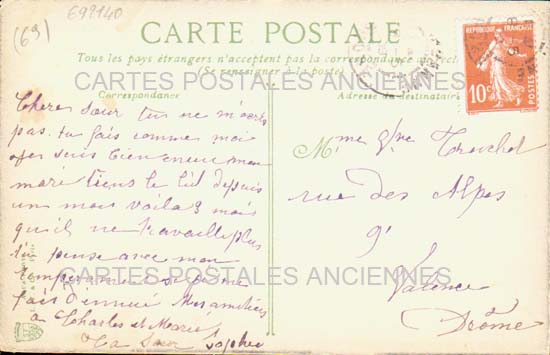 (69)
692140
CARTE POSTALE
Tous les pays étrangers n'acceptent pas la correspondance au recto
(Se renseigner à la poste)
CARTES POSTALES ANCIENNES
Correspondance
Adresse du destinataire
REPUBLIQUE FRANÇAISE
10c
POSTES
Chere Sœur tu ne m'ecris
pas tu fais comme moi
mon
mari tiens le lit depuis
un mois voila 3 mois
qu'il ne travaille plus
tu pense avec mon
temperament si je me
fais d'ennui Mes amitiees
à Charles et Marie
Ta Sœur Sophie
Mme
rue des Alpes
9
Valence
Drôme
CARTES POSTALES ANCIENNES